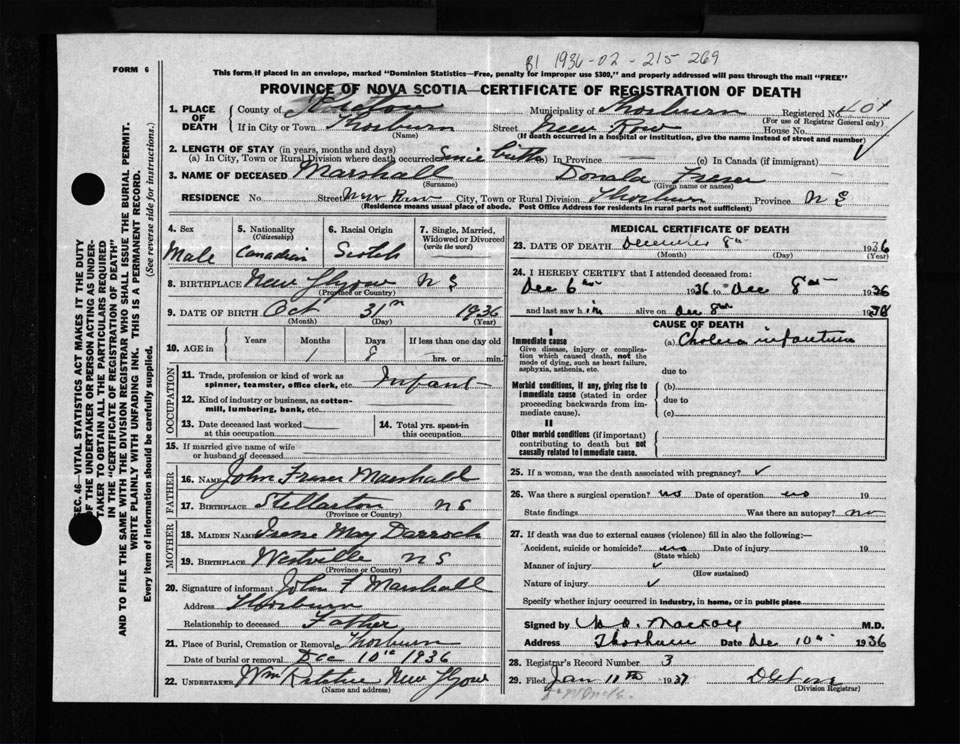 B1 1936-02-215269
FORM 6
This form if placed in an envelope, marked "Dominion Statistics—Free, penalty for improper use $300," and properly addressed will pass through the mail "FREE"
PROVINCE OF NOVA SCOTIA—CERTIFICATE OF REGISTRATION OF DEATH
1. PLACE OF DEATH County of Pictou Municipality of Thorburn Registered No.
(For use of Registrar General only)
If in City or Town Thorburn Street Row House No.
(Name) (If death occurred in a hospital or institution, give the name instead of street and number)
2. LENGTH OF STAY (in years, months and days)
(a) In City, Town or Rural Division where death occurred Since birth (b) In Province — (c) In Canada (if immigrant) —
3. NAME OF DECEASED Marshall Donald Fraser
(Surname) (Given name or names)
RESIDENCE No. Street Row City, Town or Rural Division Thorburn Province N S
(Residence means usual place of abode. Post Office Address for residents in rural parts not sufficient)
4. Sex Male
5. Nationality (Citizenship) Canadian
6. Racial Origin Scotch
7. Single, Married, Widowed or Divorced (write the word)
8. BIRTHPLACE New Glgow N S
(Province or Country)
9. DATE OF BIRTH Oct 31 1936
(Month) (Day) (Year)
10. AGE in Years Months Days If less than one day old
1 8 hrs. or min.
OCCUPATION
11. Trade, profession or kind of work as spinner, teamster, office clerk, etc. Infant
12. Kind of industry or business, as cotton-mill, lumbering, bank, etc.
13. Date deceased last worked at this occupation
14. Total yrs. spent in this occupation
15. If married give name of wife or husband of deceased
FATHER
16. NAME John Fraser Marshall
17. BIRTHPLACE Stellarton N S
(Province or Country)
MOTHER
18. MAIDEN NAME Irene May Darroch
19. BIRTHPLACE Westville N S
(Province or Country)
20. Signature of informant John F Marshall
Address Thorburn
Relationship to deceased Father
21. Place of Burial, Cremation or Removal Thorburn
Date of burial or removal Dec 10th 1936
22. UNDERTAKER Wm Ritchie New Glgow
(Name and address)
MEDICAL CERTIFICATE OF DEATH
23. DATE OF DEATH December 8th 1936
(Month) (Day) (Year)
24. I HEREBY CERTIFY that I attended deceased from:
Dec 6th 1936 to Dec 8th 1936
and last saw him alive on Dec 8th 1936
CAUSE OF DEATH
I
Immediate cause
Give disease, injury or complication which caused death, not the mode of dying, such as heart failure, asphyxia, asthenia, etc.
(a) Cholera infantum
due to
Morbid conditions, if any, giving rise to immediate cause (stated in order proceeding backwards from immediate cause).
(b)
due to
(c)
II
Other morbid conditions (if important) contributing to death but not causally related to immediate cause.
25. If a woman, was the death associated with pregnancy? ✓
26. Was there a surgical operation? no Date of operation no 19
State findings Was there an autopsy? no
27. If death was due to external causes (violence) fill in also the following:—
Accident, suicide or homicide? no Date of injury 19
(State which)
Manner of injury ✓
(How sustained)
Nature of injury ✓
Specify whether injury occurred in industry, in home, or in public place
Signed by MacKay M.D.
Address Thorburn Date Dec 10th 1936
28. Registrar's Record Number 3
29. Filed Jan 11th 1937
(Division Registrar)
SEC. 46—VITAL STATISTICS ACT MAKES IT THE DUTY
OF THE UNDERTAKER OR PERSON ACTING AS UNDER-
TAKER TO OBTAIN ALL THE PARTICULARS REQUIRED
IN THE "CERTIFICATE OF REGISTRATION OF DEATH"
AND TO FILE THE SAME WITH THE DIVISION REGISTRAR WHO SHALL ISSUE THE BURIAL PERMIT.
WRITE PLAINLY WITH UNFADING INK. THIS IS A PERMANENT RECORD.
Every item of information should be carefully supplied. (See reverse side for instructions.)